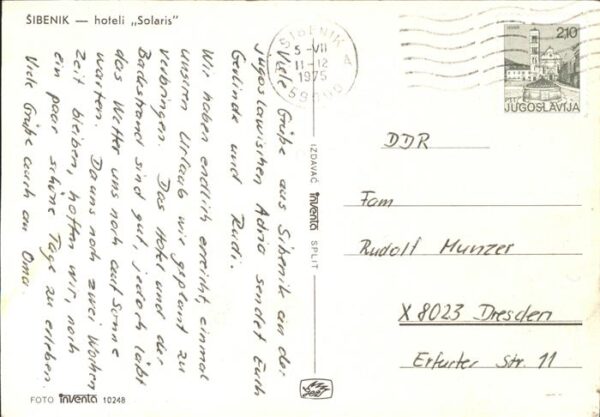 ŠIBENIK — hoteli „Solaris"
Viele Grüße aus Sibenik an der
jugoslawischen Adria sendet Euch
Gulinde und Rudi.
Wir haben endlich erreicht, einmal
unseren Urlaub wie geplant zu
verbringen. Das Hotel und der
Badestrand sind gut, jedoch läßt
das Wetter uns noch auf Sonne
warten. Da uns noch zwei Wochen
Zeit bleiben, hoffen wir, noch
ein paar schöne Tage zu erleben.
Viele Grüße auch an Oma.
FOTO inventa 10248
IZDAVAČ inventa SPLIT
ŠIBENIK 4
5-VII
11-12
1975
59000
2,10
PTT
JUGOSLAVIJA
DDR
Fam
Rudolf Munzer
X 8023 Dresden
Erfurter Str. 11